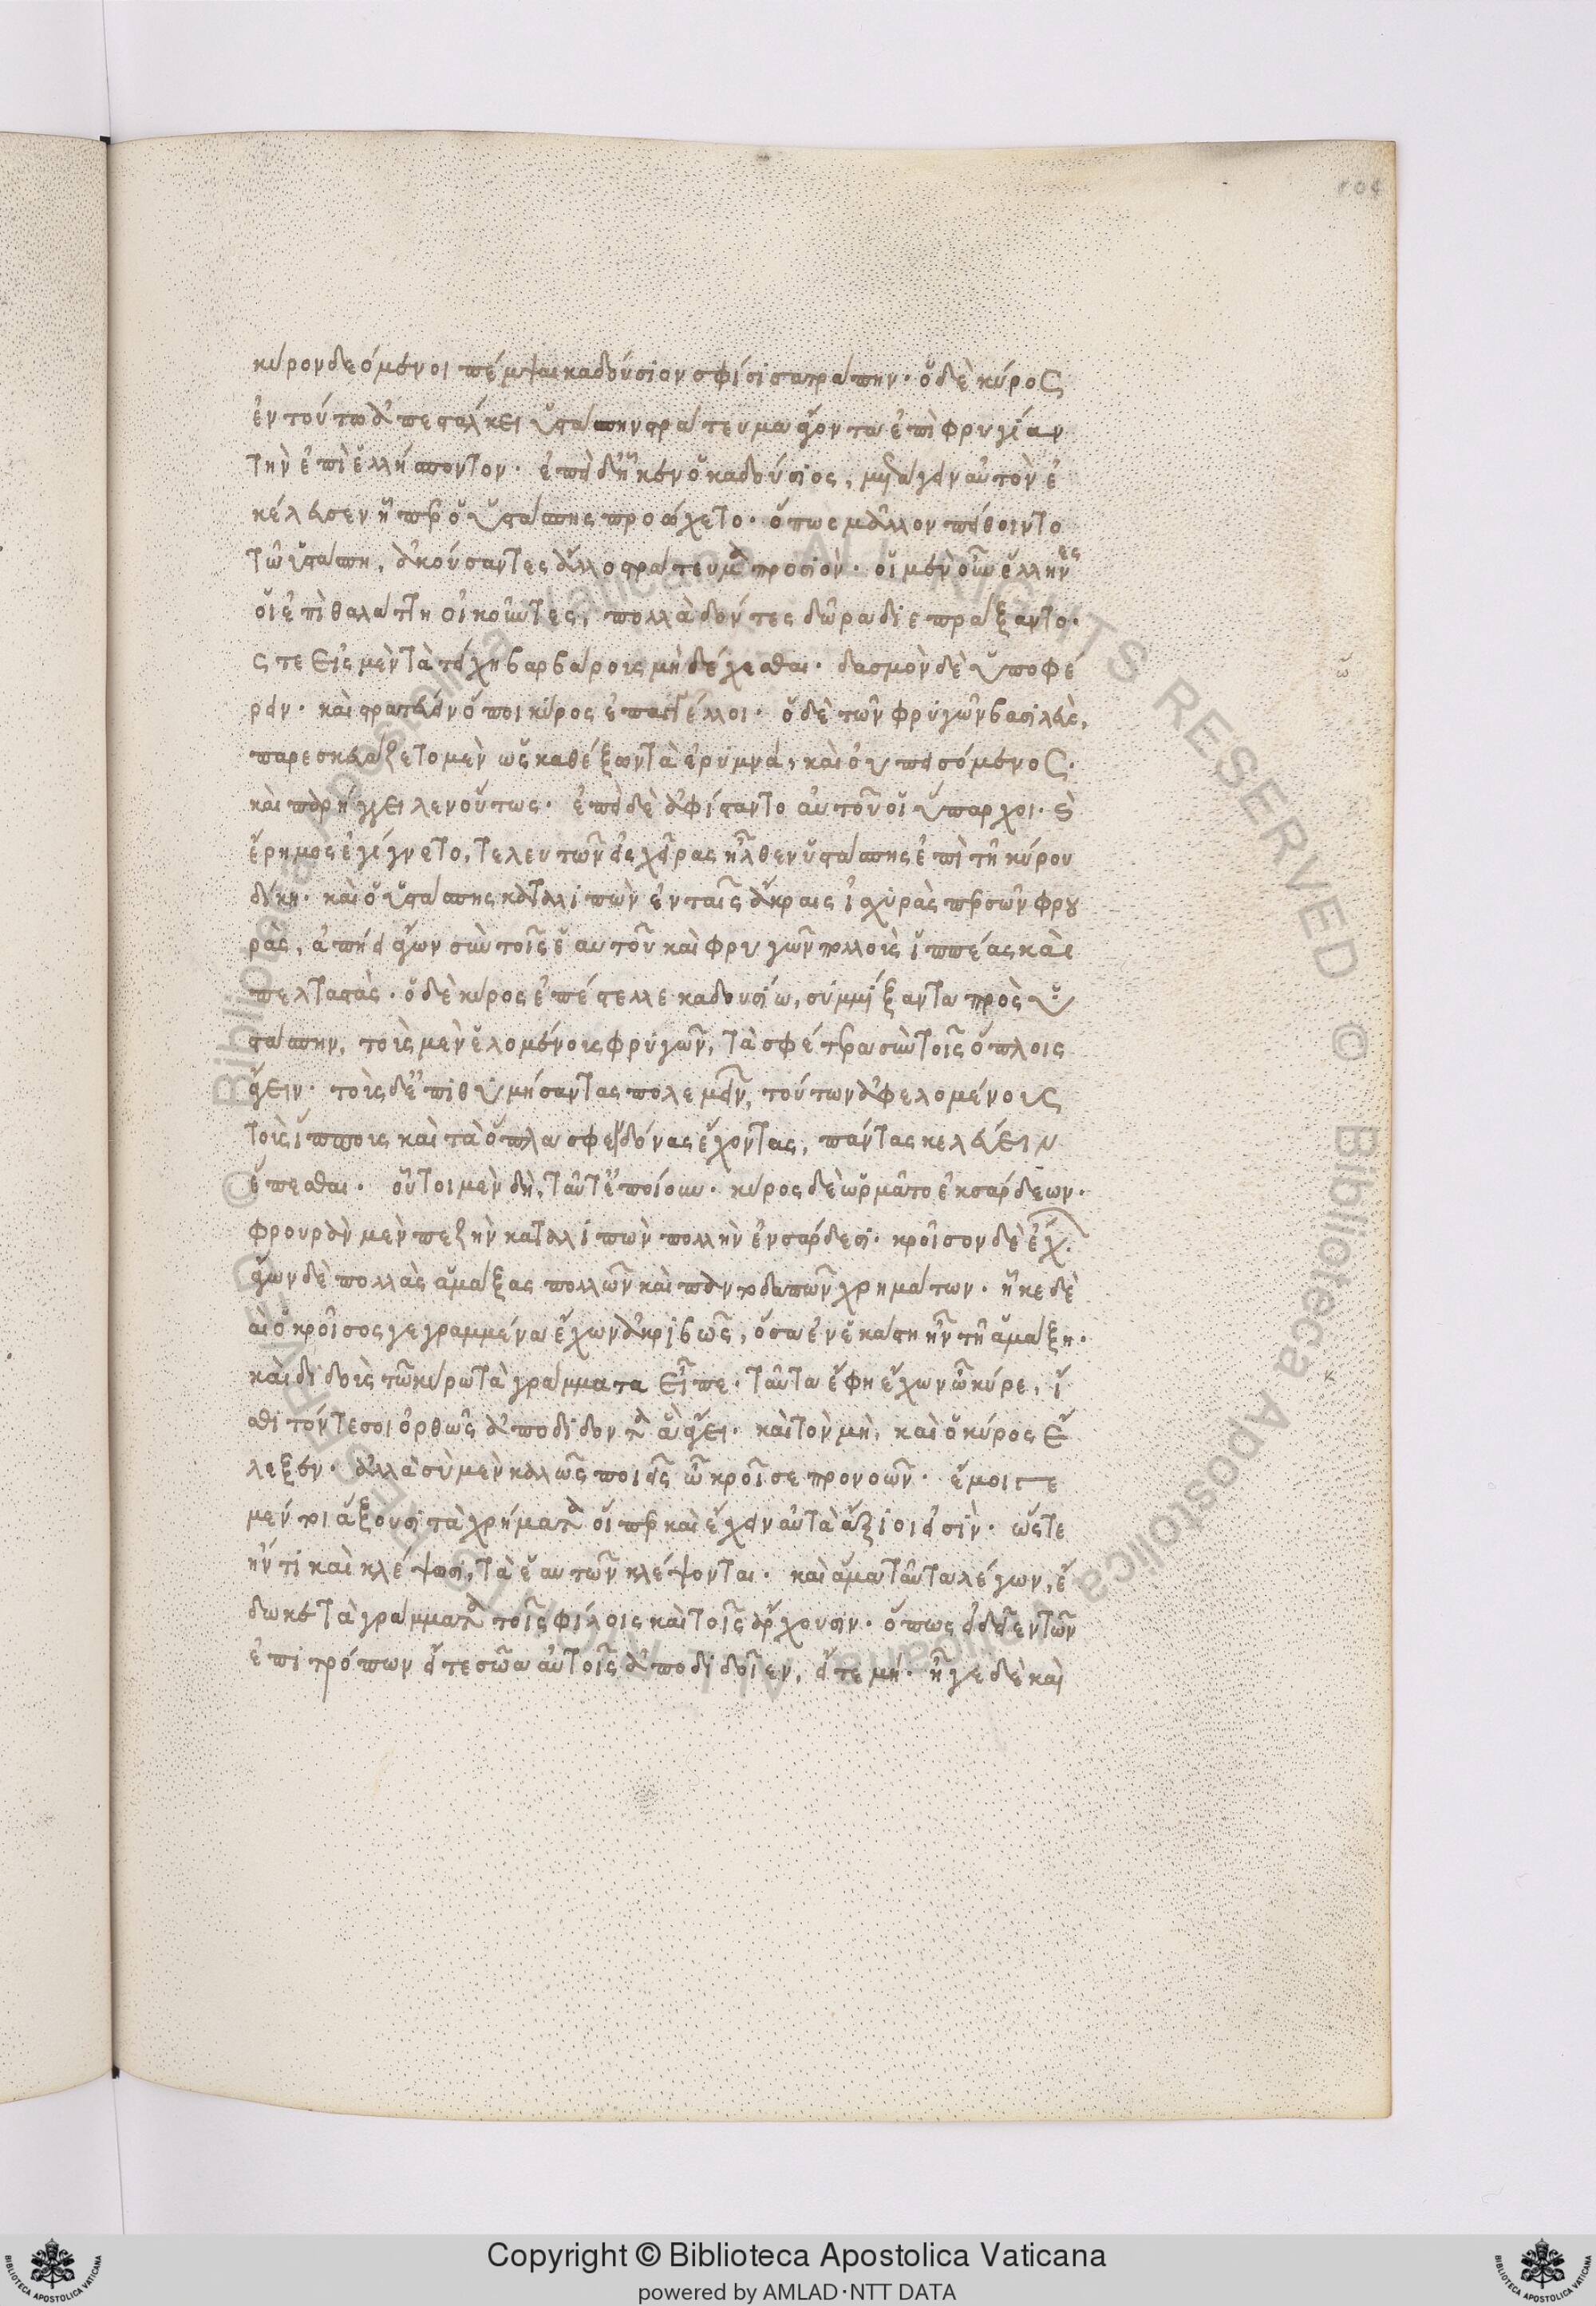 κύρον δεόμενοι πέμψαι καδούσιον σφίσι σατράπην. ὁ δὲ κύρος
ἐν τούτω ἀπεστάλκει ὑστάσπην στράτευμα ἄγοντα ἐπὶ φρυγίαν
τὴν ἐπὶ ἑλλήσποντον. ἐπεὶ δ' ἧκεν ὁ καδούσιος, μετάγειν αὐτὸν ἐ
κέλευσεν ἧπερ ὁ ὑστάσπης προώχετο. ὅπως μᾶλλον πείθοιντο
τῶ ὑστάσπη, ἀκούσαντες ἄλλο στράτευμα προσιόν. οἱ μὲν οὖν ἕλληνες
οἱ ἐπὶ θαλάττη οἰκοῦντες, πολλὰ δόντες δῶρα διεπράξαντο.
ὥστε εἰς μὲν τὰ τείχη βαρβάροις μὴ δέχεσθαι. δασμὸν δὲ ὑποφέ
ρειν. καὶ στρατεύειν ὅποι κύρος ἐπαγγέλλοι. ὁ δὲ τῶν φρυγῶν βασιλεὺς,
παρεσκευάζετο μὲν ὡς καθέξων τὰ ἐρυμνά, καὶ οὐ πεισόμενος.
καὶ παρήγγειλεν οὕτως. ἐπεὶ δὲ ἀφίσταντο αὐτοῦ οἱ ὕπαρχοι. καὶ
ἔρημος ἐγίγνετο, τελευτῶν εἰς χεῖρας ἦλθεν ὑστάσπης ἐπὶ τῆ κύρου
δίκη. καὶ ὁ ὑστάσπης καταλιπὼν ἐν ταῖς ἄκραις ἰσχυρὰς περσῶν φρου
ρὰς, ἀπήει ἄγων σὺν τοῖς ἑαυτοῦ καὶ φρυγῶν πολλοὺς ἱππέας καὶ
πελταστάς. ὁ δὲ κύρος ἐπέστελλε καδουσίω, συμμίξαντα πρὸς ὑ
στάσπην, τοὺς μὲν ἑλομένους φρυγῶν, τὰ σφέτερα σὺν τοῖς ὅπλοις
ἄγειν. τοὺς δ' ἐπιθυμήσαντας πολεμεῖν, τούτων ἀφελομένους
τοὺς ἵππους καὶ τὰ ὅπλα σφενδόνας ἔχοντας, πάντας κελεύειν
ἕπεσθαι. οὗτοι μὲν δὴ, ταῦτ' ἐποίουν. κύρος δὲ ὡρμᾶτο ἐκ σάρδεων.
φρουρὰν μὲν πεζὴν καταλιπὼν πολλὴν ἐν σάρδεσι. κροῖσον δὲ ἔχ.
ἄγων δὲ πολλὰς ἁμάξας πολλῶν καὶ παντοδαπῶν χρημάτων. ἧκε δὲ
καὶ ὁ κροῖσος γεγραμμένα ἔχων ἀκριβῶς, ὅσα ἐν ἑκάστη ἦν τῆ ἁμάξη.
καὶ διδοὺς τῶ κύρω τὰ γράμματα εἶπε. ταῦτα ἔφη ἔχων ὦ κύρε, εἴ
σθι τόν τέ σοι ὀρθῶς ἀποδιδόντα ἃ ἄγει. καὶ τὸν μὴ, καὶ ὁ κύρος ἔ
λεξεν. ἀλλὰ σὺ μὲν καλῶς ποιεῖς ὦ κροῖσε προνοῶν. ἔμοιγε
μέντοι ἄξουσι τὰ χρήματα οἵπερ καὶ ἔχειν αὐτὰ ἄξιοι εἰσίν. ὥστε
ἤν τι καὶ κλέψωσι, τὰ ἑαυτῶν κλέψονται. καὶ ἅμα ταῦτα λέγων, ἔ
δωκε τὰ γράμματα τοῖς φίλοις καὶ τοῖς ἄρχουσιν. ὅπως εἰδεῖεν τῶν
ἐπιτρόπων εἴτε σῶα αὐτοῖς ἀποδιδοῖεν, εἴτε μή. ἦγε δὲ καὶ
Copyright © Biblioteca Apostolica Vaticana
powered by AMLAD·NTT DATA